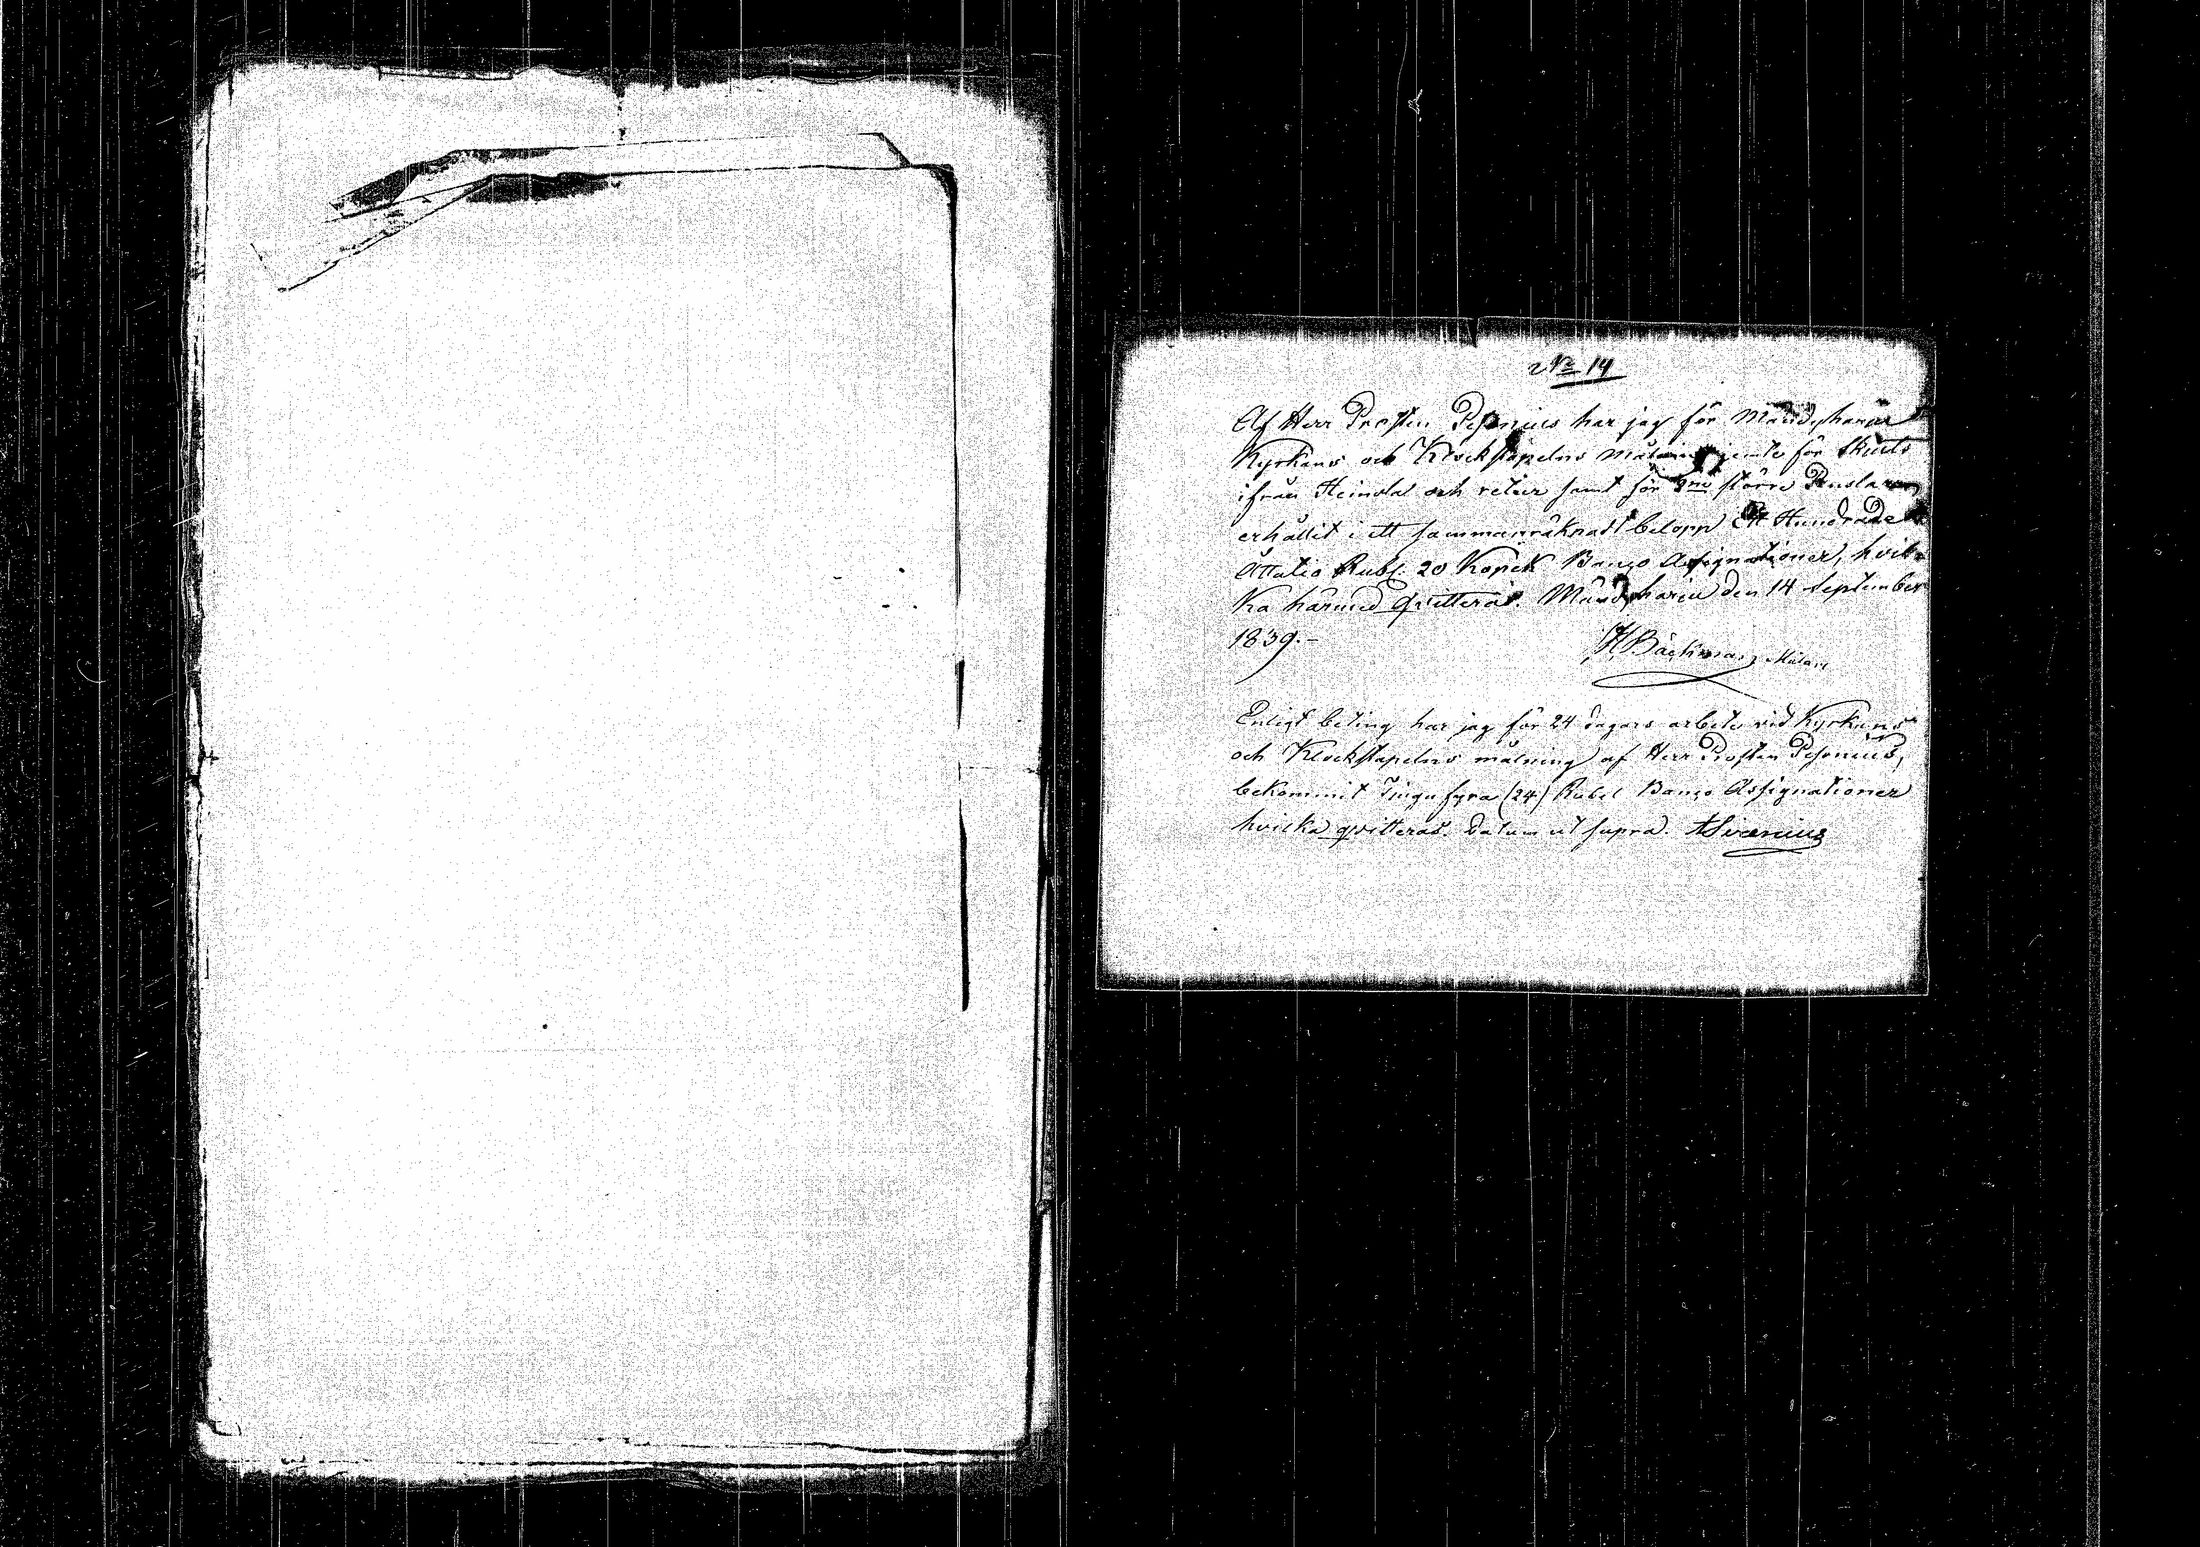 No 14
Af Herr Prosten Pesonius har jag för Mändyharju
Kyrkans och Klockstapelns målning jemte för skjuts
ifrån Heinola och retur samt för större
erhållit i ett sammanräknadt belopp Ett Hundrade
Åttatio Rubl: 20 Kopek Banco Assignationer, hvil-
ka härmed qvitteras. Mändyharju den 14 September
1839.-
HBäckman, Målare
Enligt beting har jag för 24 dagars arbete vid Kyrkans
och Klockstapelns målning af Herr Prosten Pesonius,
bekommit Tjugufyra (24) Rubel Banco Assignationer
hvilka qvitteras. Datum ut supra. ASirenius